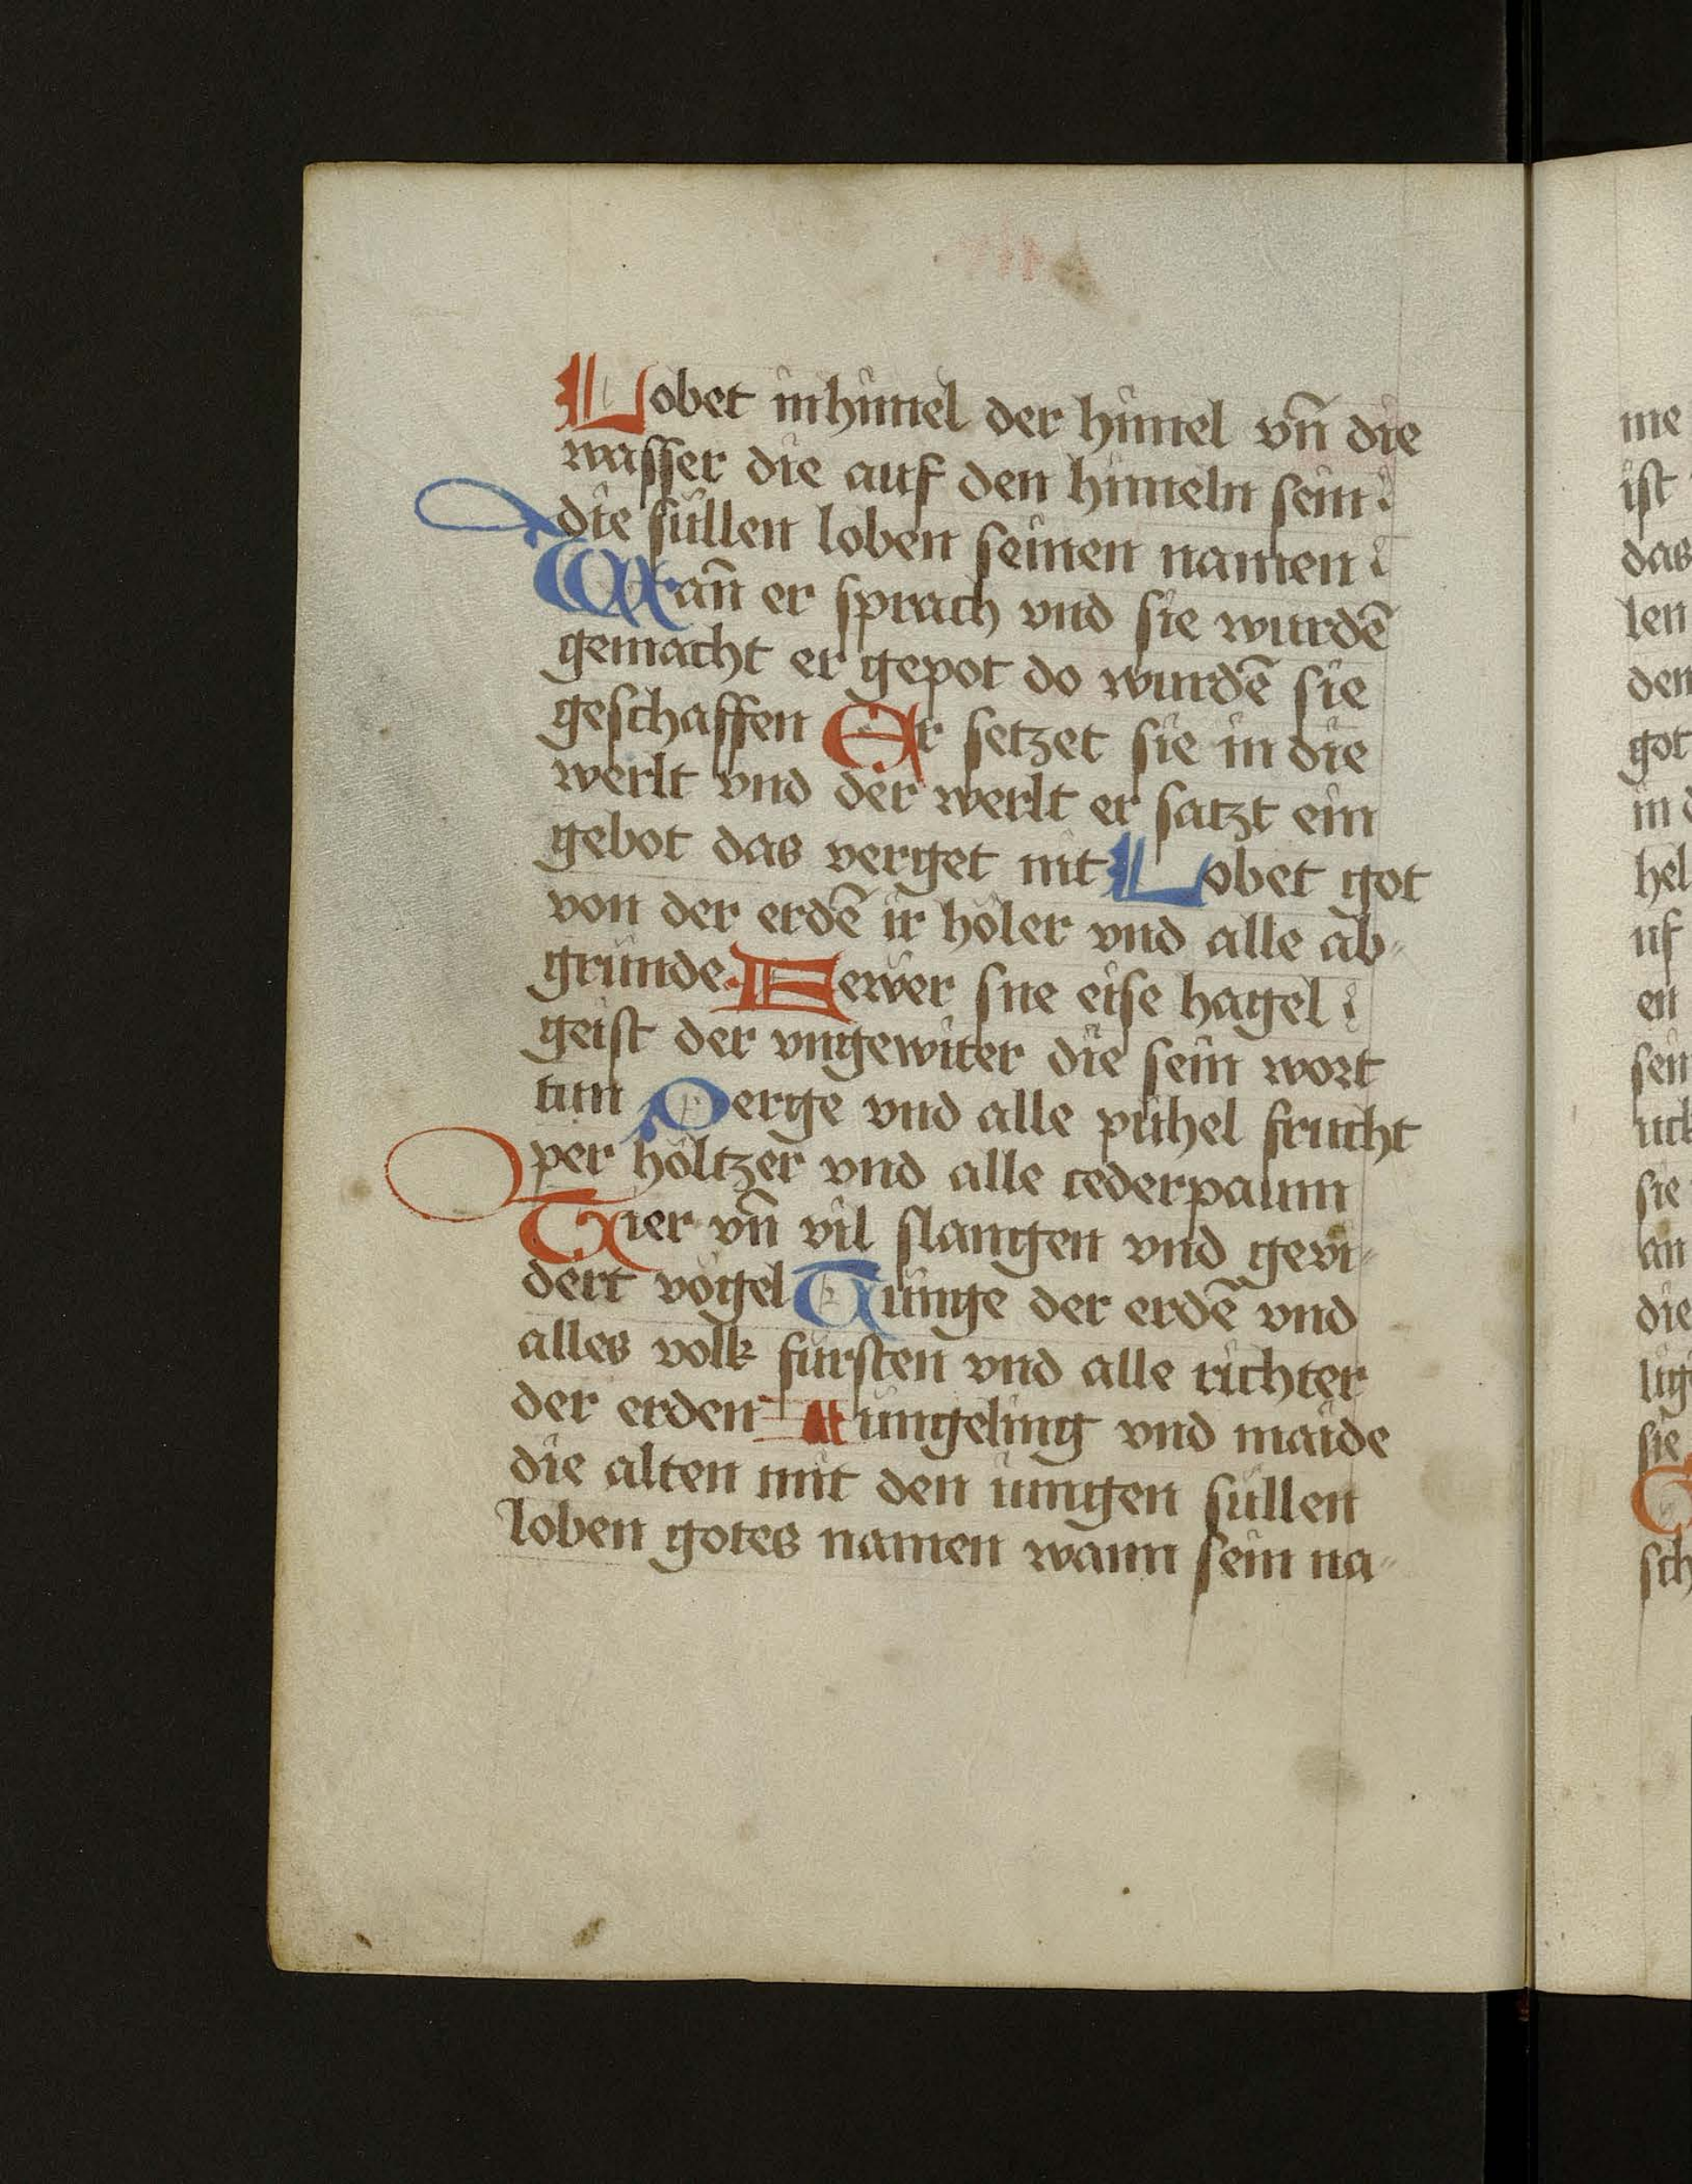 Lobet in himel der himel vn̄ die
wasser die auf den himeln sein
die sullen loben seinen namen
Wan̄ er sprach vnd sie wurdē
gemacht er gepot do wurdē sie
geschaffen Er setzet sie in die
werlt vnd der werlt er satzt ein
gebot das verget nit Lobet got
von der erdē ir höler vnd alle ab-
gründe. Fewer sne eise hagel
geist der vngewiter die sein wort
tun Perge vnd alle pühel frucht
per höltzer vnd alle cederpaum
Tier vn̄ vil slangen vnd gevi-
dert vögel Kunge der erdē vnd
alles volk fürsten vnd alle richter
der erden Jungeling vnd maide
die alten mit den iungen süllen
loben gotes namen wann sein na-
me
ist
das
len
den
got
in d
hel
uf
en
sein
uck
sie
an
die
lig
sie
sch